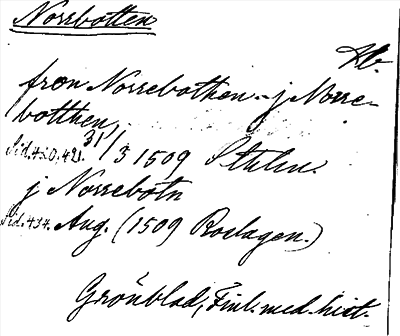 Norrbotten
Hb.
fron Norrebothen - j Norre-
botthen
Sid. 420, 421. 31/3 1509 Sthlm.
j Norrebotn
Sid. 434. Aug. (1509 Roslagen.)
Grönblad, Finl. med. hist.